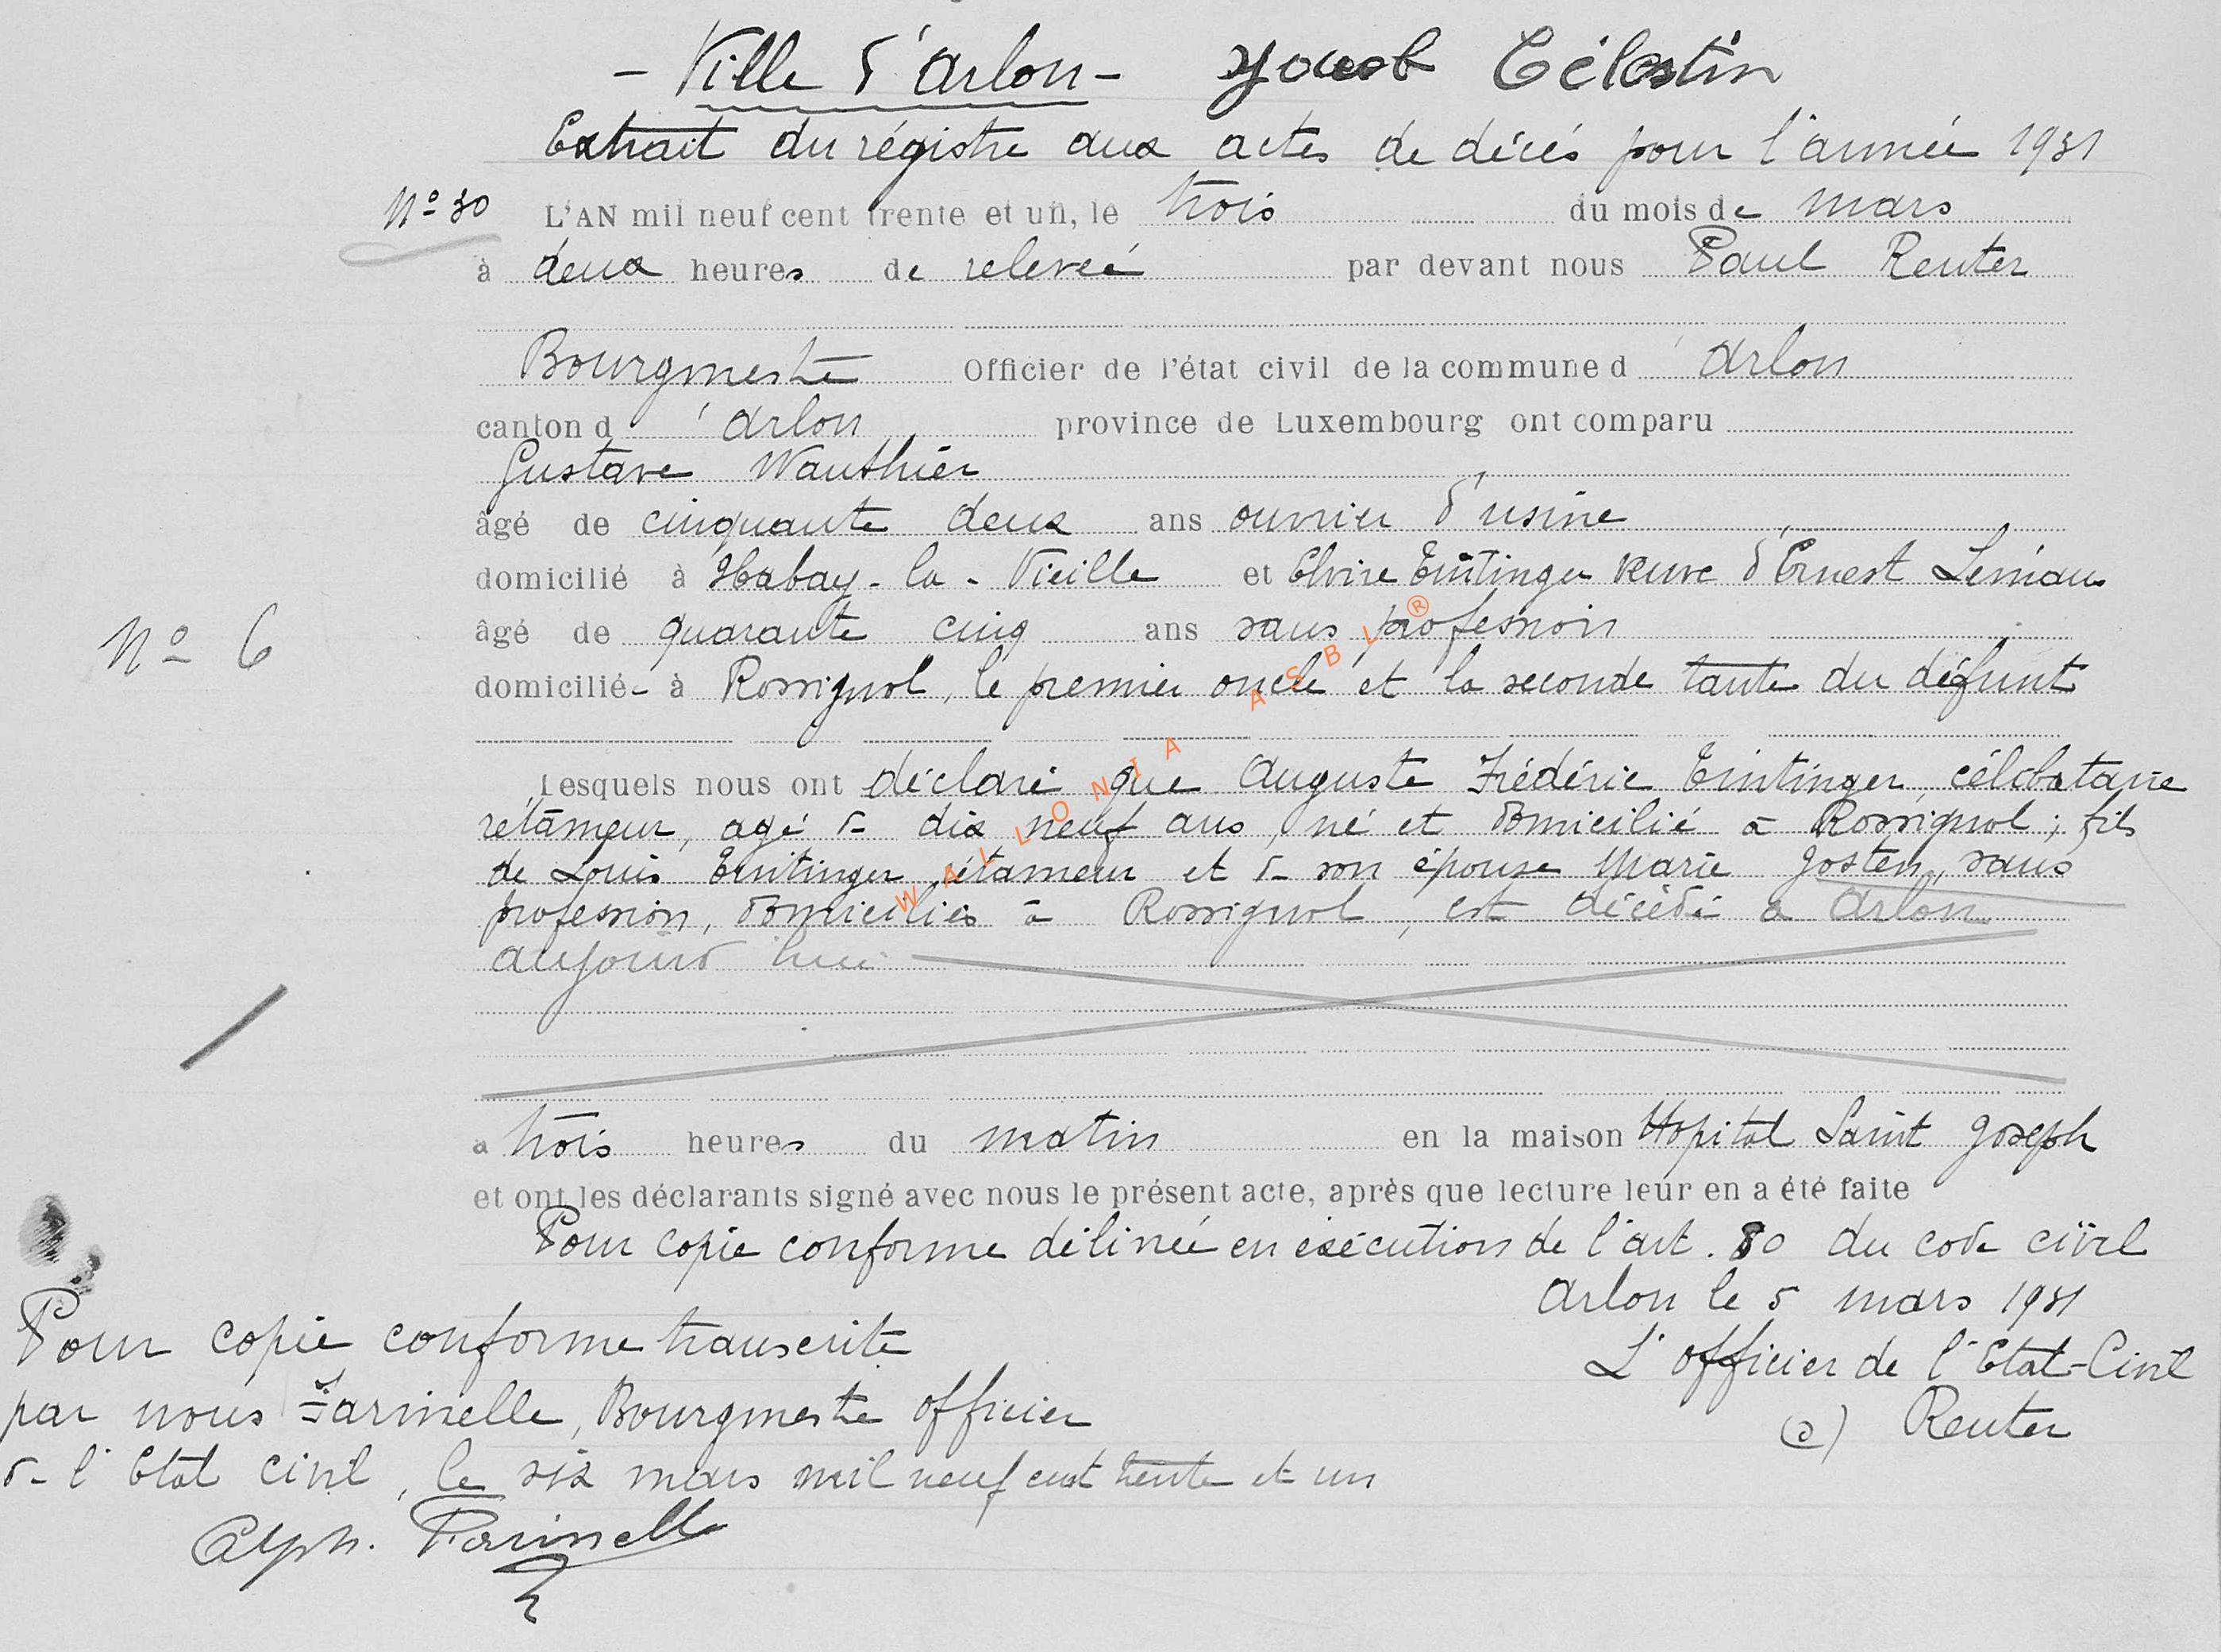 - Ville d'Arlon - Yacob Célestin
Extrait du régistre aux actes de décés pour l'année 1931
N° 30 L'AN mil neuf cent trente et un, le trois du mois de mars
à deux heures de relevée par devant nous Paul Reuter
Bourgmestre Officier de l'état civil de la commune d'Arlon
canton d'Arlon province de Luxembourg ont comparu
Gustave Wauthier
âgé de cinquante deux ans ouvrier d'usine
domicilié à Habay-la-Vieille et Elvire Eintinger veuve d'Ernest
N° 6 âgé de quarante cinq ans sans profession
domicilié- à Rossignol, le premier oncle et la seconde tante du défunt
Lesquels nous ont déclaré que Auguste Frédéric Eintinger, célibataire
rétameur, agé de dix neuf ans, né et domicilié à Rossignol; fils
de Louis Eintinger, rétameur et de son épouse Marie Josten, sans
profession, domiciliés à Rossignol, est décédé à Arlon
aujourd'hui
a trois heures du matin en la maison Hopital Saint Joseph
et ont les déclarants signé avec nous le présent acte, après que lecture leur en a été faite
Pour copie conforme délivrée en exécution de l'art. 80 du code civil
Arlon le 5 mars 1931
L'officier de l'Etat-Civil
(s) Reuter
Pour copie conforme transcrite
par nous Farinelle, Bourgmestre officier
de l'Etat civil, le six mars mil neuf cent trente et un
Alph. Farinelle
WALLONIA ASBL ®